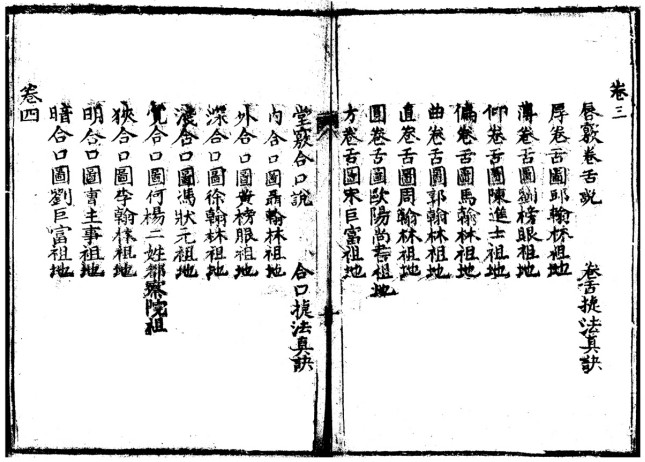 卷三
唇毅卷舌説 卷舌捷法真訣
厚卷舌圖邱翰林祖地
薄卷舌圖劉榜眼祖地
仰卷舌圖陳進士祖地
偏卷舌圖馬翰林祖地
曲卷舌圖郭翰林祖地
直卷舌圖周翰林祖地
圓卷舌圖歐陽尚書祖地
方卷舌圖宋巨富祖地
堂毅合口説 合口捷法真訣
內合口圖聶翰林祖地
外合口圖黄榜眼祖地
深合口圖徐翰林祖地
淺合口圖馮狀元祖地
寛合口圖何楊二姓都察院祖
狹合口圖李翰林祖地
明合口圖曹主事祖地
暗合口圖劉巨富祖地
卷四